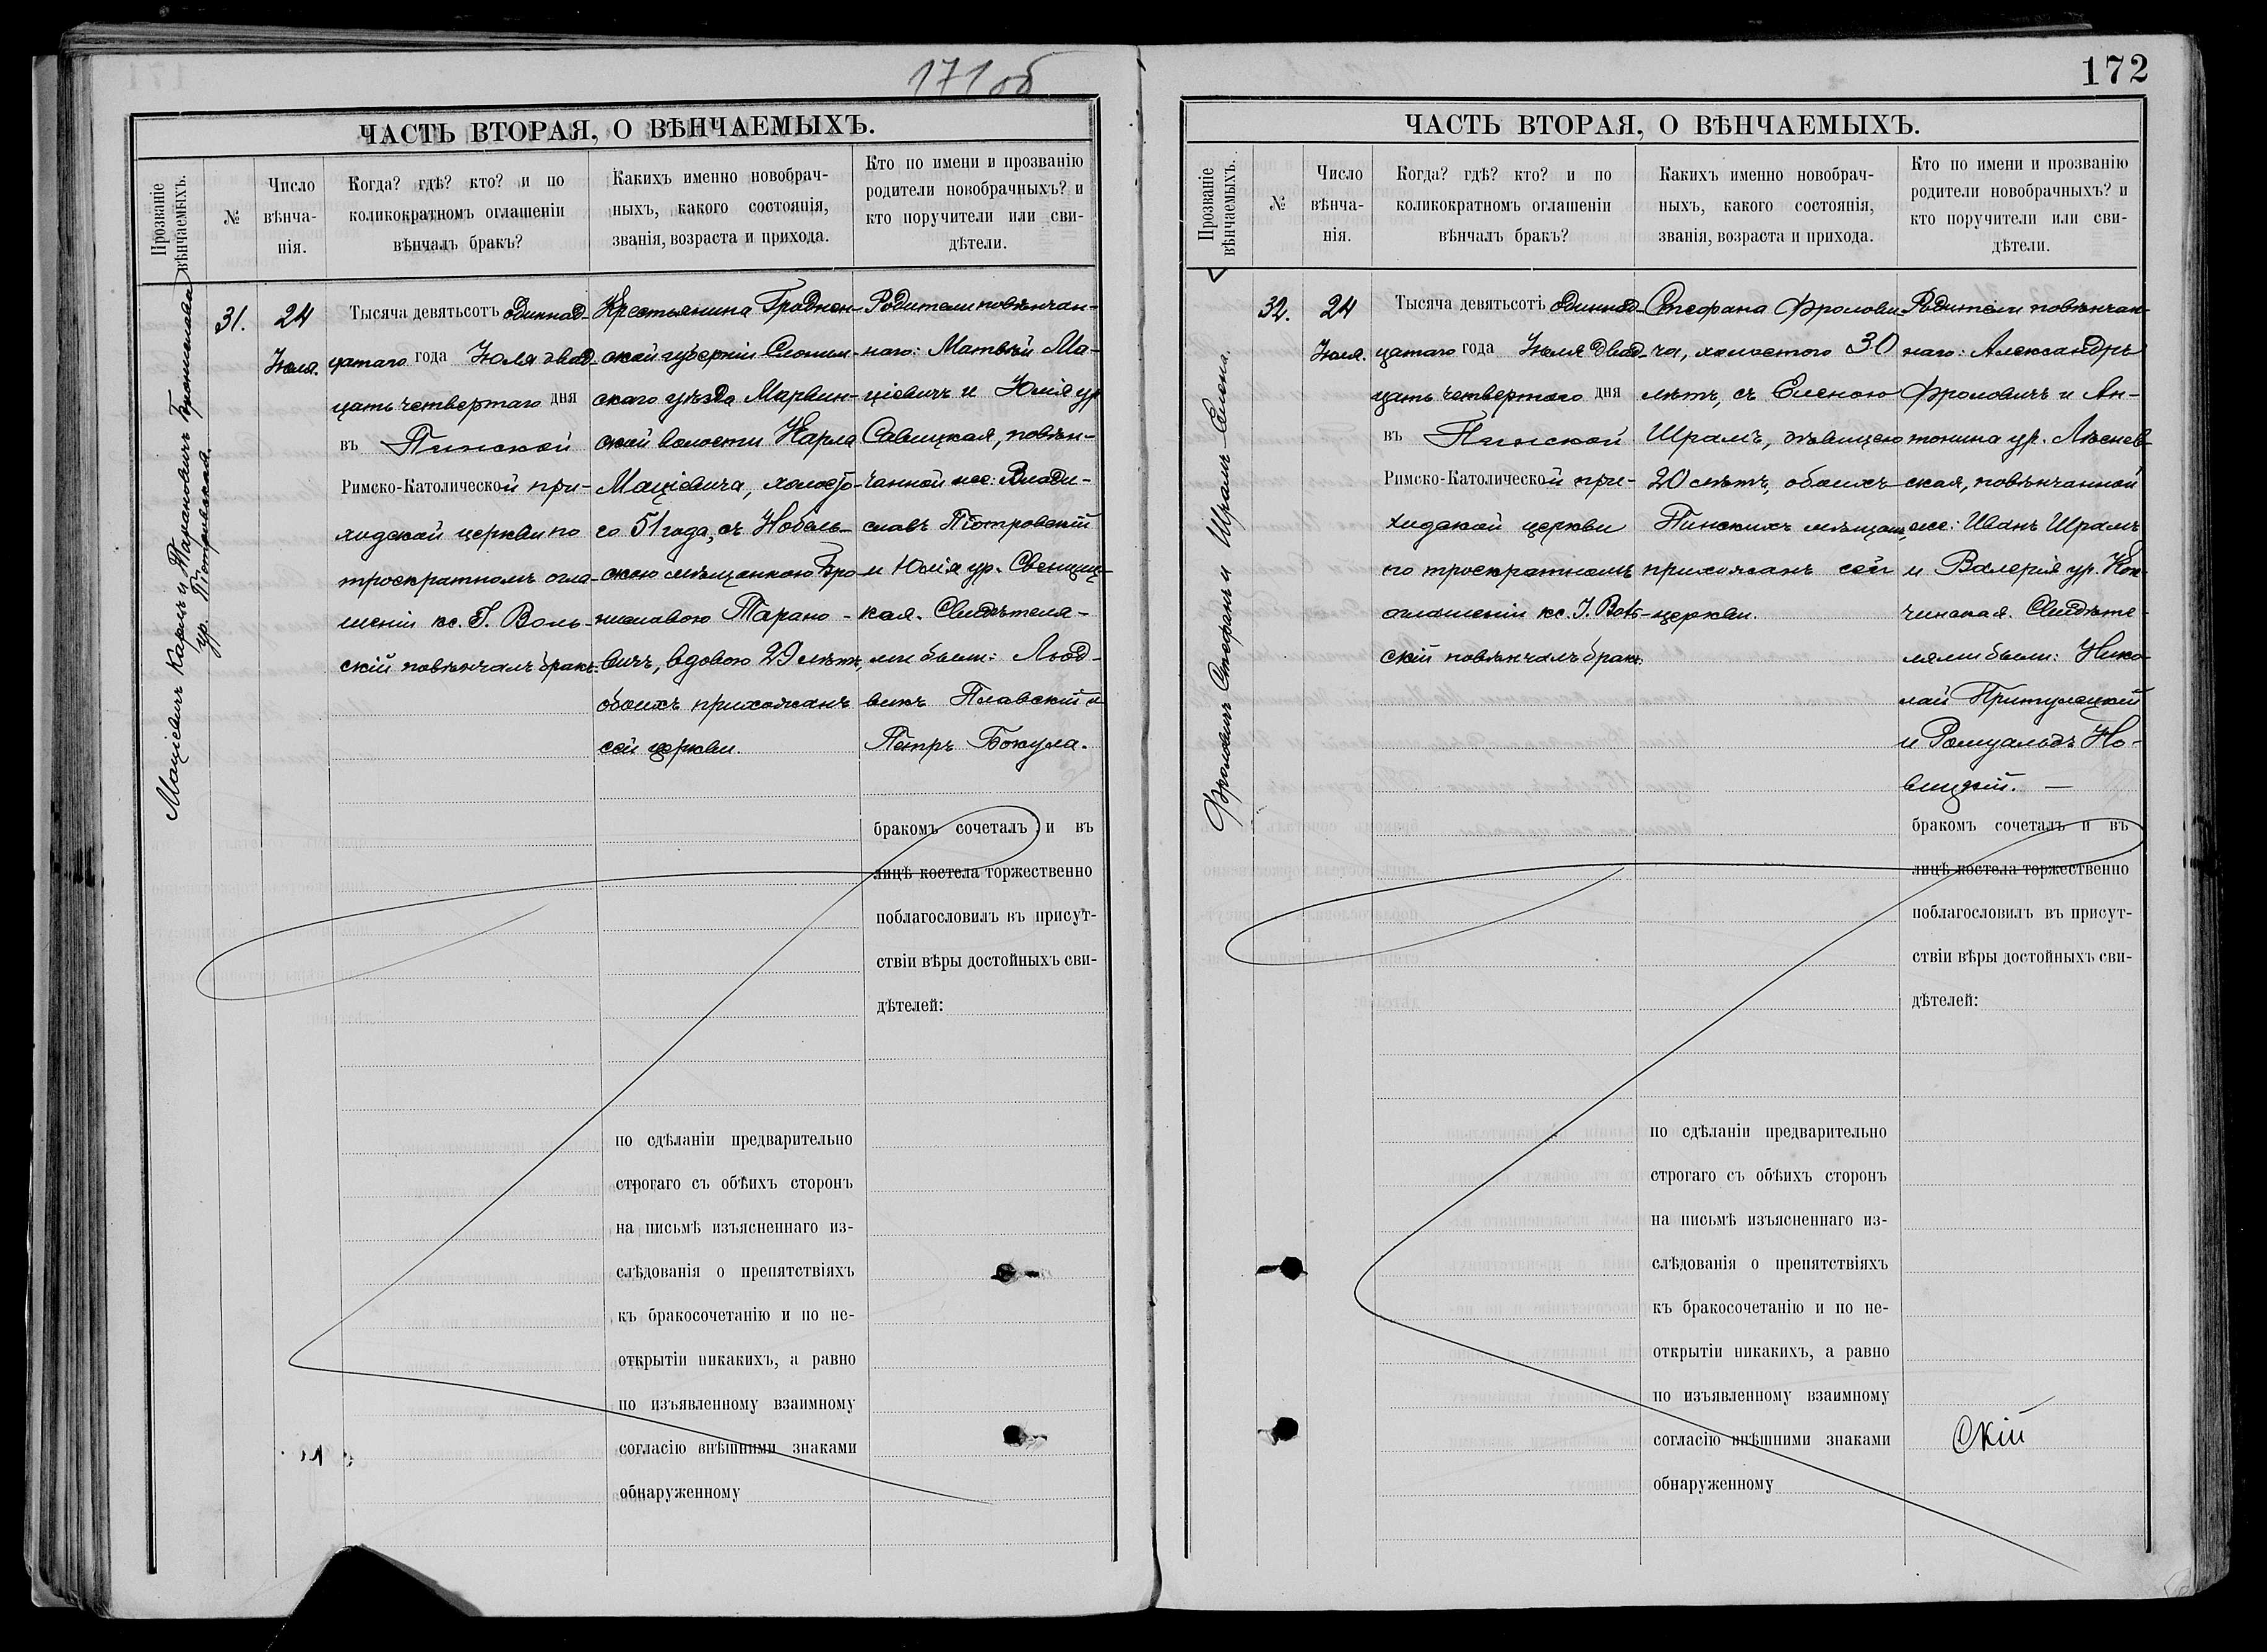 171об
ЧАСТЬ ВТОРАЯ, О ВѢНЧАЕМЫХЪ.
Прозваніе
вѣнчаемыхъ.
№
Число
вѣнча-
нія.
Когда? гдѣ? кто? и по
коликократномъ оглашеніи
вѣнчалъ бракъ?
Какихъ именно новобрач-
ныхъ, какого состоянія,
званія, возраста и прихода.
Кто по имени и прозванію
родители новобрачныхъ? и
кто поручители или сви-
дѣтели.
Маціевичъ Карлъ и Тарановичъ Бронислава
ур. Піотровская.
31.
24
Іюля.
Тысяча девятьсотъ одиннад-
цатаго года Іюля двад-
цать четвертаго дня
въ Пинской
Римско-Католической при-
ходской церкви по
троекратномъ огла-
шеніи кс. І. Воль-
скій повѣнчалъ бракъ:
Крестьянина Гроднен-
ской губерніи Слоним-
скаго уѣзда Марвин-
ской волости Карла
Маціевича, холосто-
го 51 года, съ Нобель-
скою мѣщанкою Бро-
ниславою Тарано-
вичъ, вдовою 29 лѣтъ,
обоихъ прихожанъ
сей церкви.
Родители повѣнчан-
наго: Матвѣй Ма-
ціевичъ и Юлія ур.
Савицкая, повѣн-
чанной же: Влади-
славъ Піотровскій
и Юлія ур. Свенциц-
кая. Свидѣтеля-
ми были: Люд-
викъ Плавскій и
Петръ Бокула.
бракомъ сочеталъ и въ
лицѣ костела торжественно
поблагословилъ въ присут-
ствіи вѣры достойныхъ сви-
дѣтелей:
по сдѣланіи предварительно
строгаго съ обѣихъ сторонъ
на письмѣ изъясненнаго из-
слѣдованія о препятствіяхъ
къ бракосочетанію и по не-
открытіи никакихъ, а равно
по изъявленному взаимному
согласію внѣшними знаками
обнаруженному
172
ЧАСТЬ ВТОРАЯ, О ВѢНЧАЕМЫХЪ.
Прозваніе
вѣнчаемыхъ.
№
Число
вѣнча-
нія.
Когда? гдѣ? кто? и по
коликократномъ оглашеніи
вѣнчалъ бракъ?
Какихъ именно новобрач-
ныхъ, какого состоянія,
званія, возраста и прихода.
Кто по имени и прозванію
родители новобрачныхъ? и
кто поручители или сви-
дѣтели.
Фроловичъ Стефанъ и Шрамъ Елена.
32.
24
Іюля.
Тысяча девятьсотъ одиннад-
цатаго года Іюля двад-
цать четвертаго дня
въ Пинской
Римско-Католической при-
ходской церкви
по троекратномъ
оглашеніи кс. І. Воль-
скій повѣнчалъ бракъ:
Стефана Фролови-
ча, холостого 30
лѣтъ, съ Еленою
Шрамъ, дѣвицею
20 лѣтъ, обоихъ
Пинскихъ мѣщанъ
прихожанъ сей
церкви.
Родители повѣнчан-
наго: Александръ
Фроловичъ и Ан-
тонина ур. Лѣснев-
ская, повѣнчанной
же: Иванъ Шрамъ
и Валерія ур. Коп-
чинская. Свидѣте-
лями были: Нико-
лай Притулецкій
и Ромуальдъ Но-
вицкій. —
бракомъ сочеталъ и въ
лицѣ костела торжественно
поблагословилъ въ присут-
ствіи вѣры достойныхъ сви-
дѣтелей:
по сдѣланіи предварительно
строгаго съ обѣихъ сторонъ
на письмѣ изъясненнаго из-
слѣдованія о препятствіяхъ
къ бракосочетанію и по не-
открытіи никакихъ, а равно
по изъявленному взаимному
согласію внѣшними знаками
обнаруженному
скій